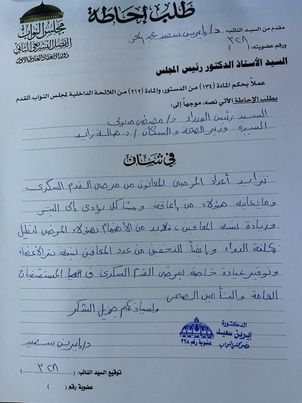 طلب إحاطة
مجلس النواب
الفصل التشريعي الثاني
مقدم من السيد النائب : د/ إيرين سعيد
رقم عضويته : ( ٣٢٨ )
السيد الأستاذ الدكتور رئيس المجلس
عملاً بحكم المادة (١٣٤) من الدستور، والمادة (٢١٢) من اللائحة الداخلية لمجلس النواب أتقدم
بطلب الإحاطة الآتي نصه، موجهاً إلى:
السيد رئيس الوزراء د/ مصطفى مدبولي
السيدة وزير الصحة والسكان / د. هالة زايد
في شأن
تزايد أعداد المرضى المعانون من مرض القدم السكري
وما يعانيه هؤلاء من إعاقة ومشاكل تؤدي إلى البتر
وزيادة نسبة المعاقين، فلابد من الاهتمام بهؤلاء المرضى لتقليل
تكلفة الدواء وأيضاً للتخفيف من عدد المعاقين نتيجة بتر الأعضاء
وتوفير عيادة خاصة لمرضى القدم السكري في المستشفيات
العامة والتأمين الصحي
ولسيادتكم جزيل الشكر
الدكتورة
إيرين سعيد
عضو مجلس النواب
عضوية رقم ٣٢٨
د/ إيرين سعيد
توقيع السيد النائب:
عضوية رقم ( ٣٢٨ )